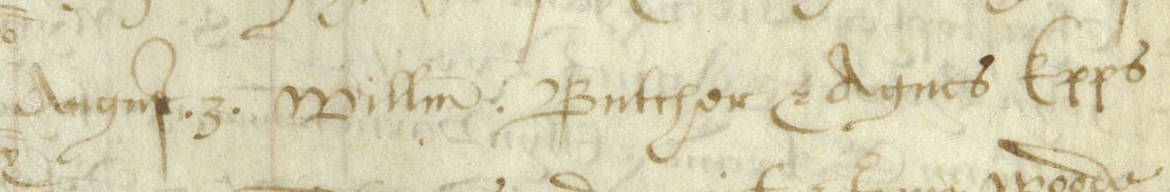 August. 3. Willm̄. Butcher & Agnes Epps